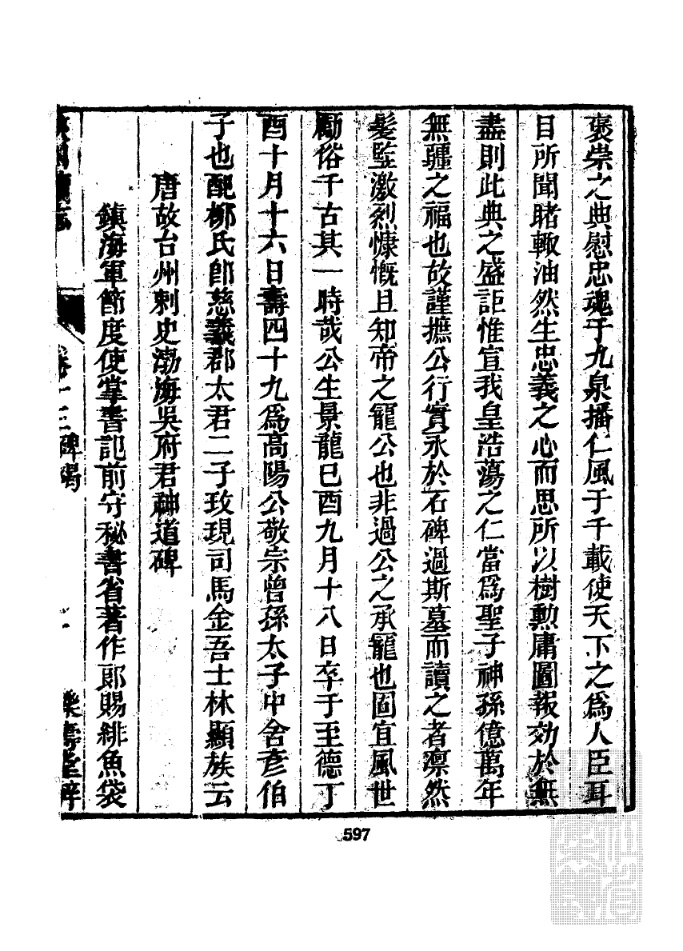 褒崇之典慰忠魂于九泉播仁風于千載使天下之爲人臣耳
目所聞睹輙油然生忠義之心而思所以樹勳庸圖報効於無
盡則此典之盛詎惟宣我皇浩蕩之仁當爲聖子神孫億萬年
無疆之福也故謹摭公行實永於石碑過斯墓而讀之者凛然
髮竪激烈慷慨且知帝之寵公也非過公之承寵也固宜風世
勵俗千古其一時哉公生景龍巳酉九月十八日卒于至德丁
酉十月十六日壽四十九爲高陽公敬宗曾孫太子中舍彦伯
子也配栁氏郎慈義郡太君二子玫現司馬金吾士林顯族云
唐故台州刺史渤海吳府君神道碑
鎮海軍節度使掌書記前守秘書省著作郎賜緋魚袋
卷十三碑碣
597